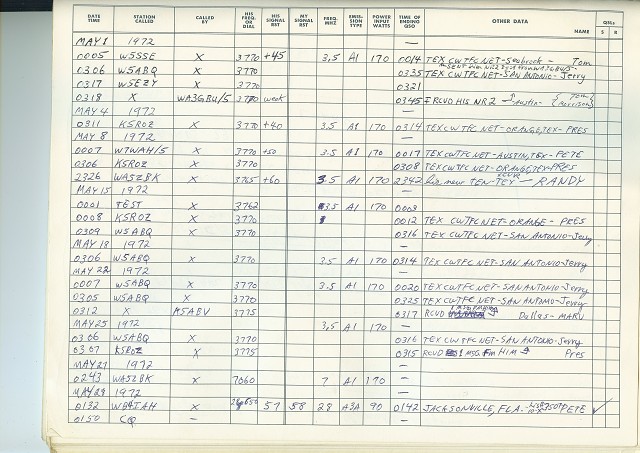 DATE TIME STATION CALLED CALLED BY HIS FREQ. OR DIAL HIS SIGNAL RST MY SIGNAL RST FREQ. MHZ EMIS- SION TYPE POWER INPUT WATTS TIME OF ENDING QSO OTHER DATA NAME QSLs S R
MAY 1 1972 —
0005 W5SSE X 3770 +45 3.5 A1 170 0014 TEX CWTFC NET-Seabrook - Tom
0306 W5ABQ X 3770 0335 TEX CWTFC NET-SAN ANTONIO-Jerry
0317 W5EZY X 3770 0321
0318 X WA3GBU/5 3770 weak 0345 I RCVD HIS NR2 Austin- Tom Morrison
MAY 4 1972 —
0311 K5ROZ X 3770 +40 3.5 A1 170 0314 TEX CWTFC NET-ORANGE, TEX-PRES
MAY 8 1972 —
0007 W7WAH/5 X 3770 +50 3.5 A1 170 0017 TEX CWTFC NET-AUSTIN, TEX-PETE
0306 K5ROZ X 3770 0308 TEX CWTFC NET-ORANGE, TEX-PRES
2326 WA5ZBK X 3765 +60 3.5 A1 170 2342 his new TEN-TEC - RANDY
MAY 15 1972 —
0001 TEST X 3762 3.5 A1 170 0003
0008 K5ROZ X 3770 0012 TEX CWTFC NET-ORANGE - PRES
0309 W5ABQ X 3770 0316 TEX CWTFC NET-SAN ANTONIO-Jerry
MAY 18 1972 —
0306 W5ABQ X 3770 3.5 A1 170 0314 TEX CWTFC NET-SAN ANTONIO-Jerry
MAY 22 1972 —
0007 W5ABQ X 3770 3.5 A1 170 0020 TEX CWTFC NET-SAN ANTONIO-Jerry
0305 W5ABQ X 3770 0325 TEX CWTFC NET-SAN ANTONIO-Jerry
0312 X K5ABV 3775 0317 RCVD Dallas-MARV
MAY 25 1972 3.5 A1 170 —
0306 W5ABQ X 3770 0316 TEX CWTFC NET-SAN ANTONIO-Jerry
0307 K5ROZ X 3775 0315 RCVD 1 MSG. Fm HIM Pres
MAY 27 1972 —
0243 WA5ZBK X 7060 7 A1 170 —
MAY 29 1972 —
0132 WB4IAH X 28650 57 58 28 A3A 90 0142 JACKSONVILLE, FLA. PETE ✓
0150 CQ — —